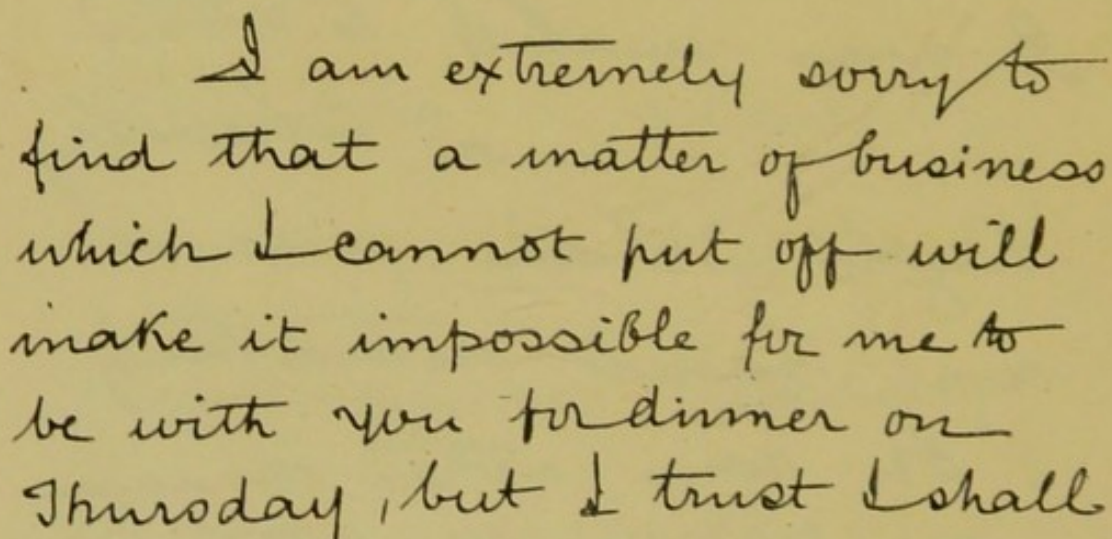 I am extremely sorry to
find that a matter of business
which I cannot put off will
make it impossible for me to
be with you for dinner on
Thursday, but I trust I shall